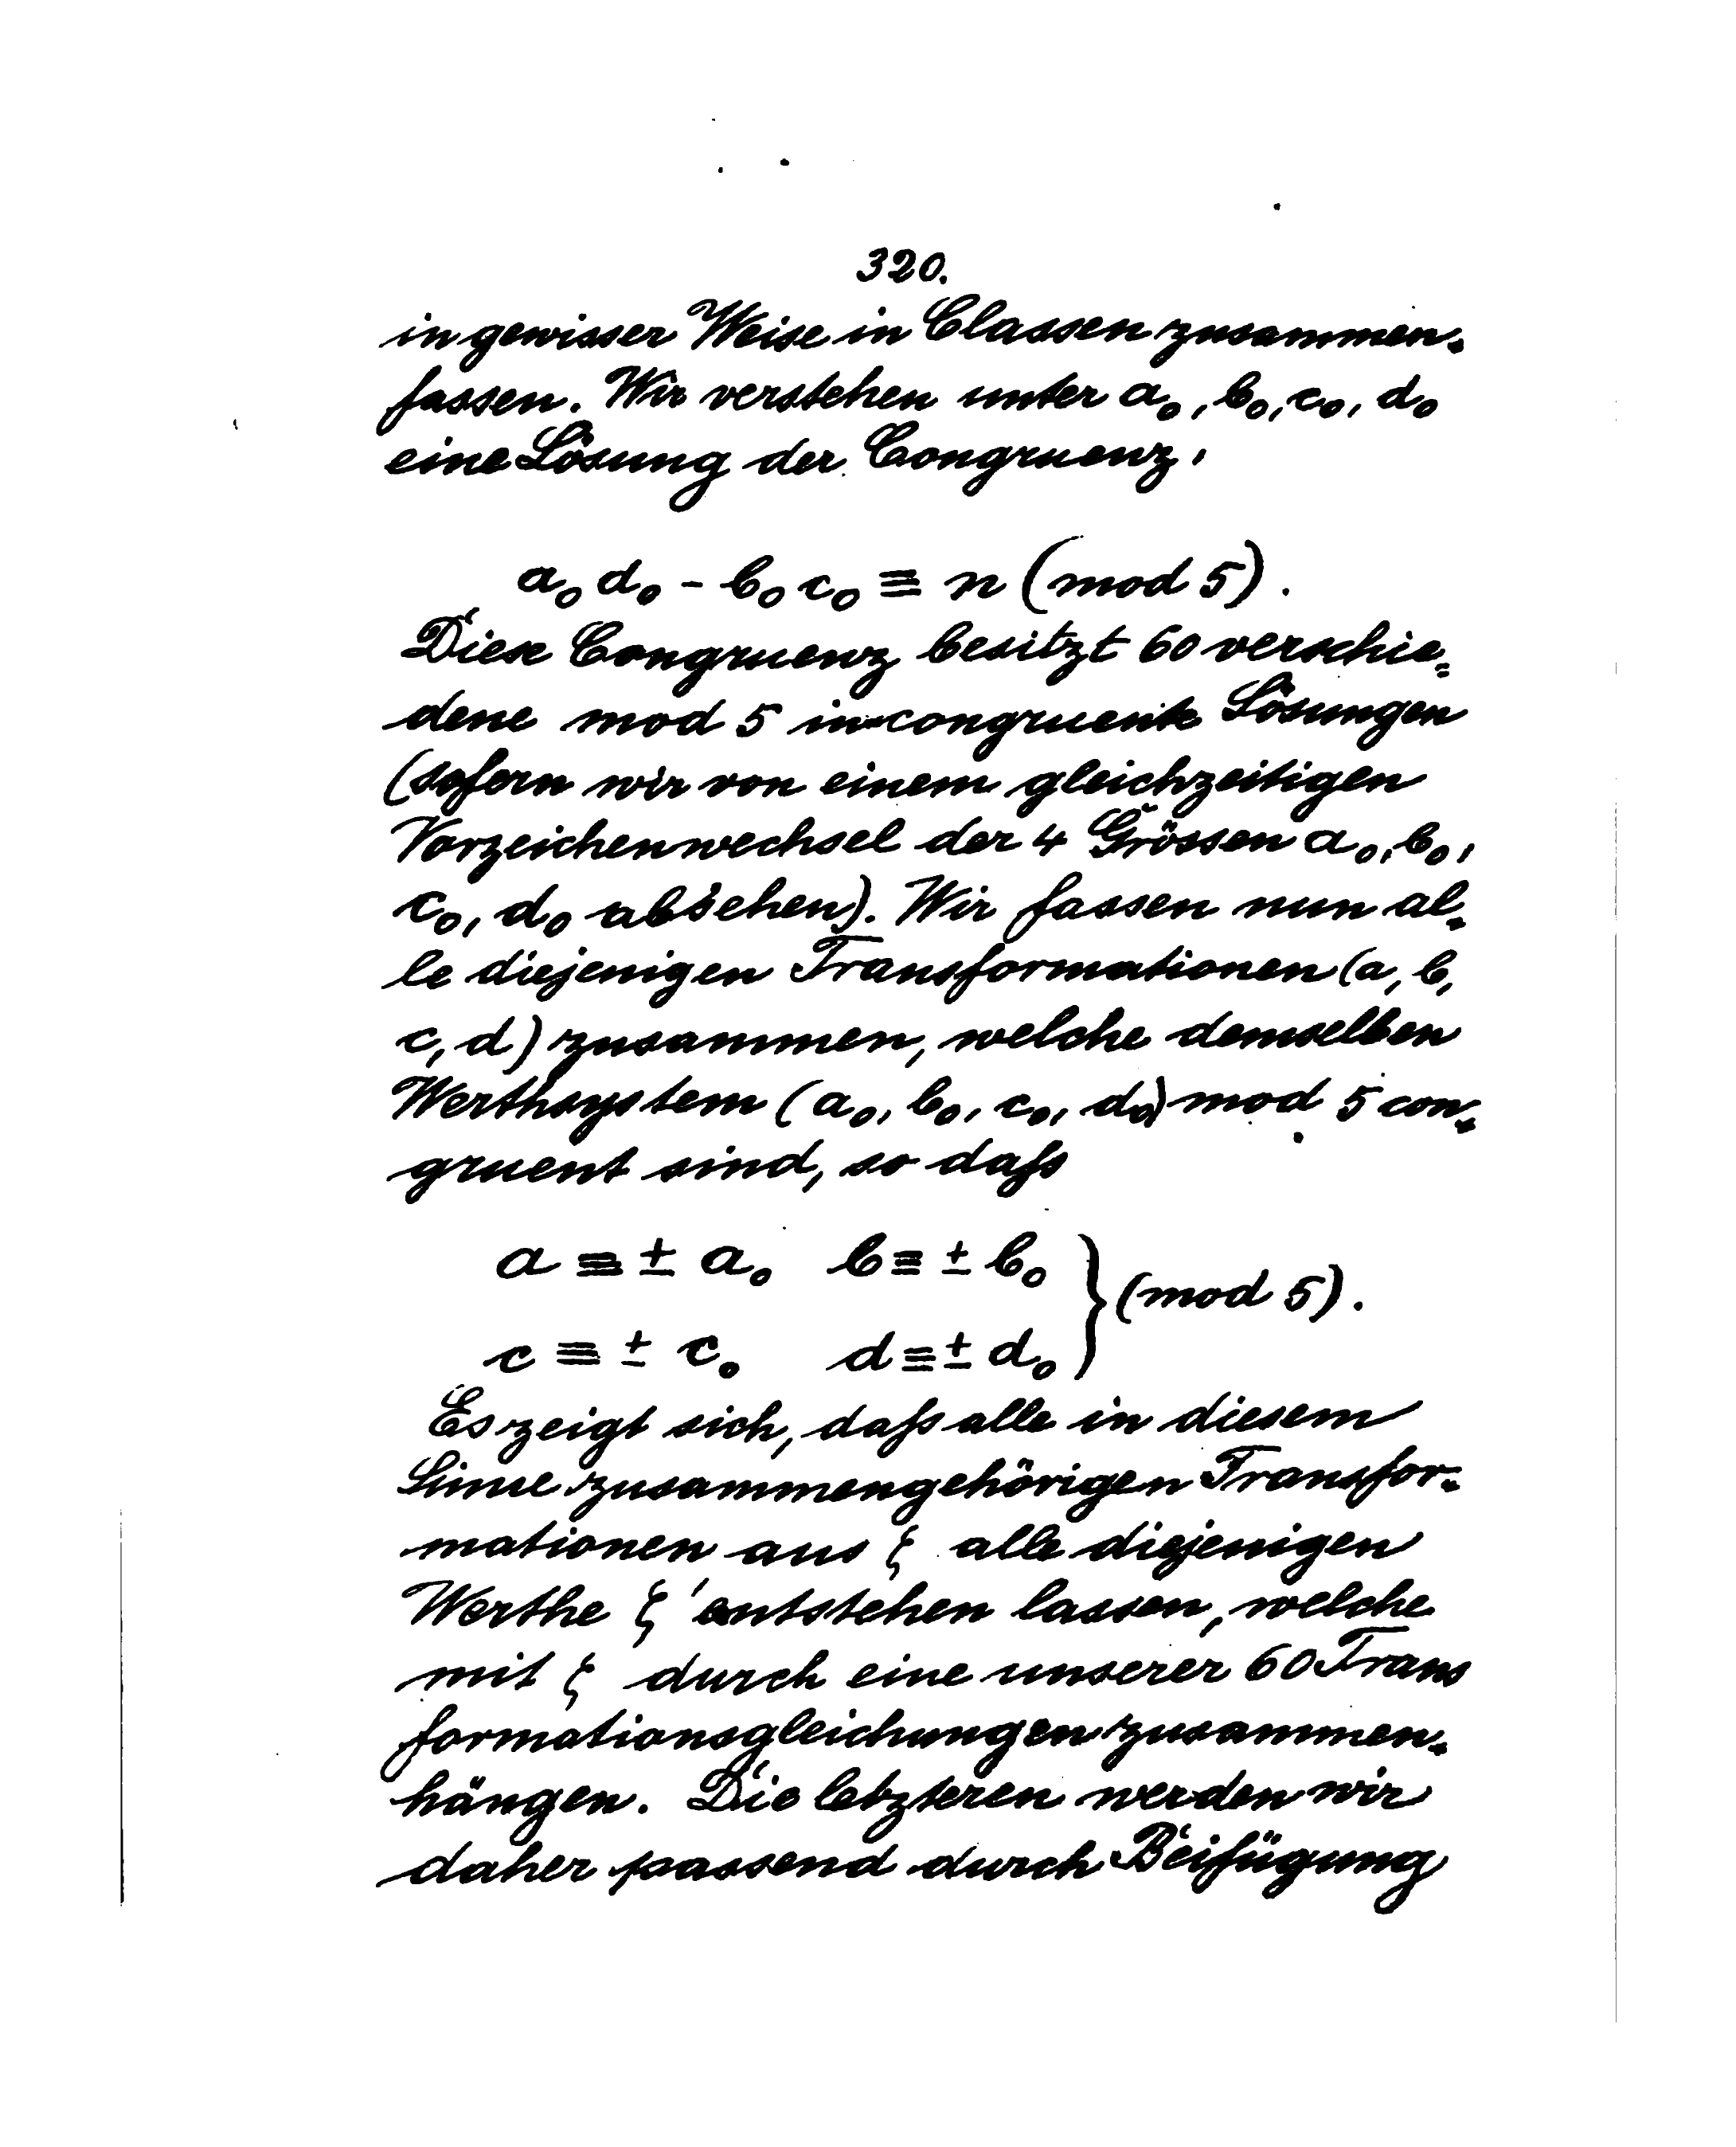 320.
in gewisser Weise in Classen zusammen-
fassen. Wir verstehen unter a₀, b₀, c₀, d₀
eine Lösung der Congruenz,
a₀ d₀ - b₀ c₀ ≡ n (mod 5).
Diese Congruenz besitzt 60 verschie=
dene mod 5 in-congruente Lösungen
(sofern wir von einem gleichzeitigen
Vorzeichenwechsel der 4 Grössen a₀, b₀,
c₀, d₀ absehen). Wir fassen nun al-
le diejenigen Transformationen (a, b,
c, d) zusammen, welche demselben
Werthsystem (a₀, b₀, c₀, d₀) mod 5 con-
gruent sind, so daſs
a ≡ ± a₀ b ≡ ± b₀
c ≡ ± c₀ d ≡ ± d₀ } (mod 5).
Es zeigt sich, daſs alle in diesem
Sinne zusammengehörigen Transfor-
mationen aus ζ alle diejenigen
Werthe ζ' entstehen lassen, welche
mit ζ durch eine unserer 60 Trans
formationsgleichungen zusammen-
hängen. Die letzteren werden wir
daher passend durch Beifügung